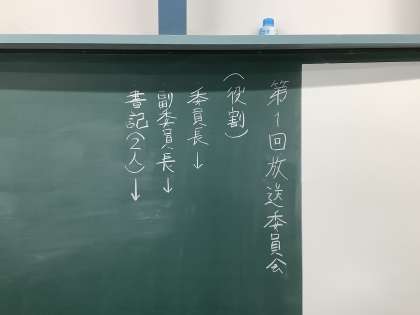 第1回放送委員会
(役割)
委員長↓
副委員長↓
書記(2人)↓